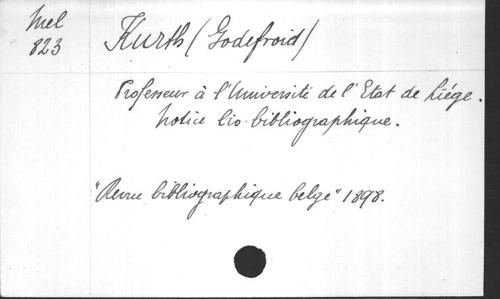 Mel
823
Kurth (Godefroid)
Professeur à l'Université de l'Etat de Liége.
Notice bio-bibliographique.
"Revue bibliographique belge" 1898.